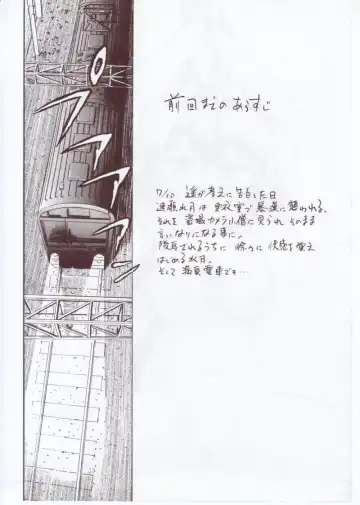 前回までのあらすじ
7/10 遙が孝之に告白した日
速瀬水月は更衣室で暴漢に襲われる。
それを盗撮カメラ小僧に見られ そのまま
言いなりになる事に。
陵辱されるうちに 徐々に 快感を覚え
はじめる水月。
そして満員電車でも…